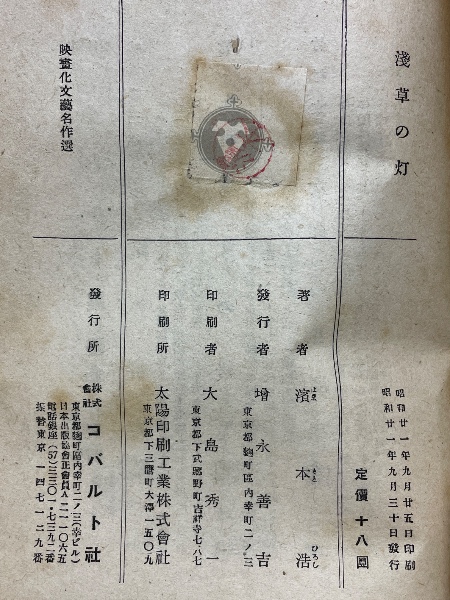 淺草の灯
昭和廿一年九月廿五日印刷
昭和廿一年九月三十日發行
定價十八圓
著者 濱本浩
はま もと ひろし
發行者 增永善吉
東京都麴町區内幸町二ノ三
印刷者 大島秀一
東京都下武藏野町吉祥寺七八七
印刷所 太陽印刷工業株式會社
東京都下三鷹町大澤一五〇九
映畫化文藝名作選
發行所 株式會社 コバルト社
東京都麴町區内幸町二ノ三(幸ビル)
日本出版協會正會員A二一一〇六五
電話銀座(57)三三〇一・七三九二番
振替東京一四七一二九番